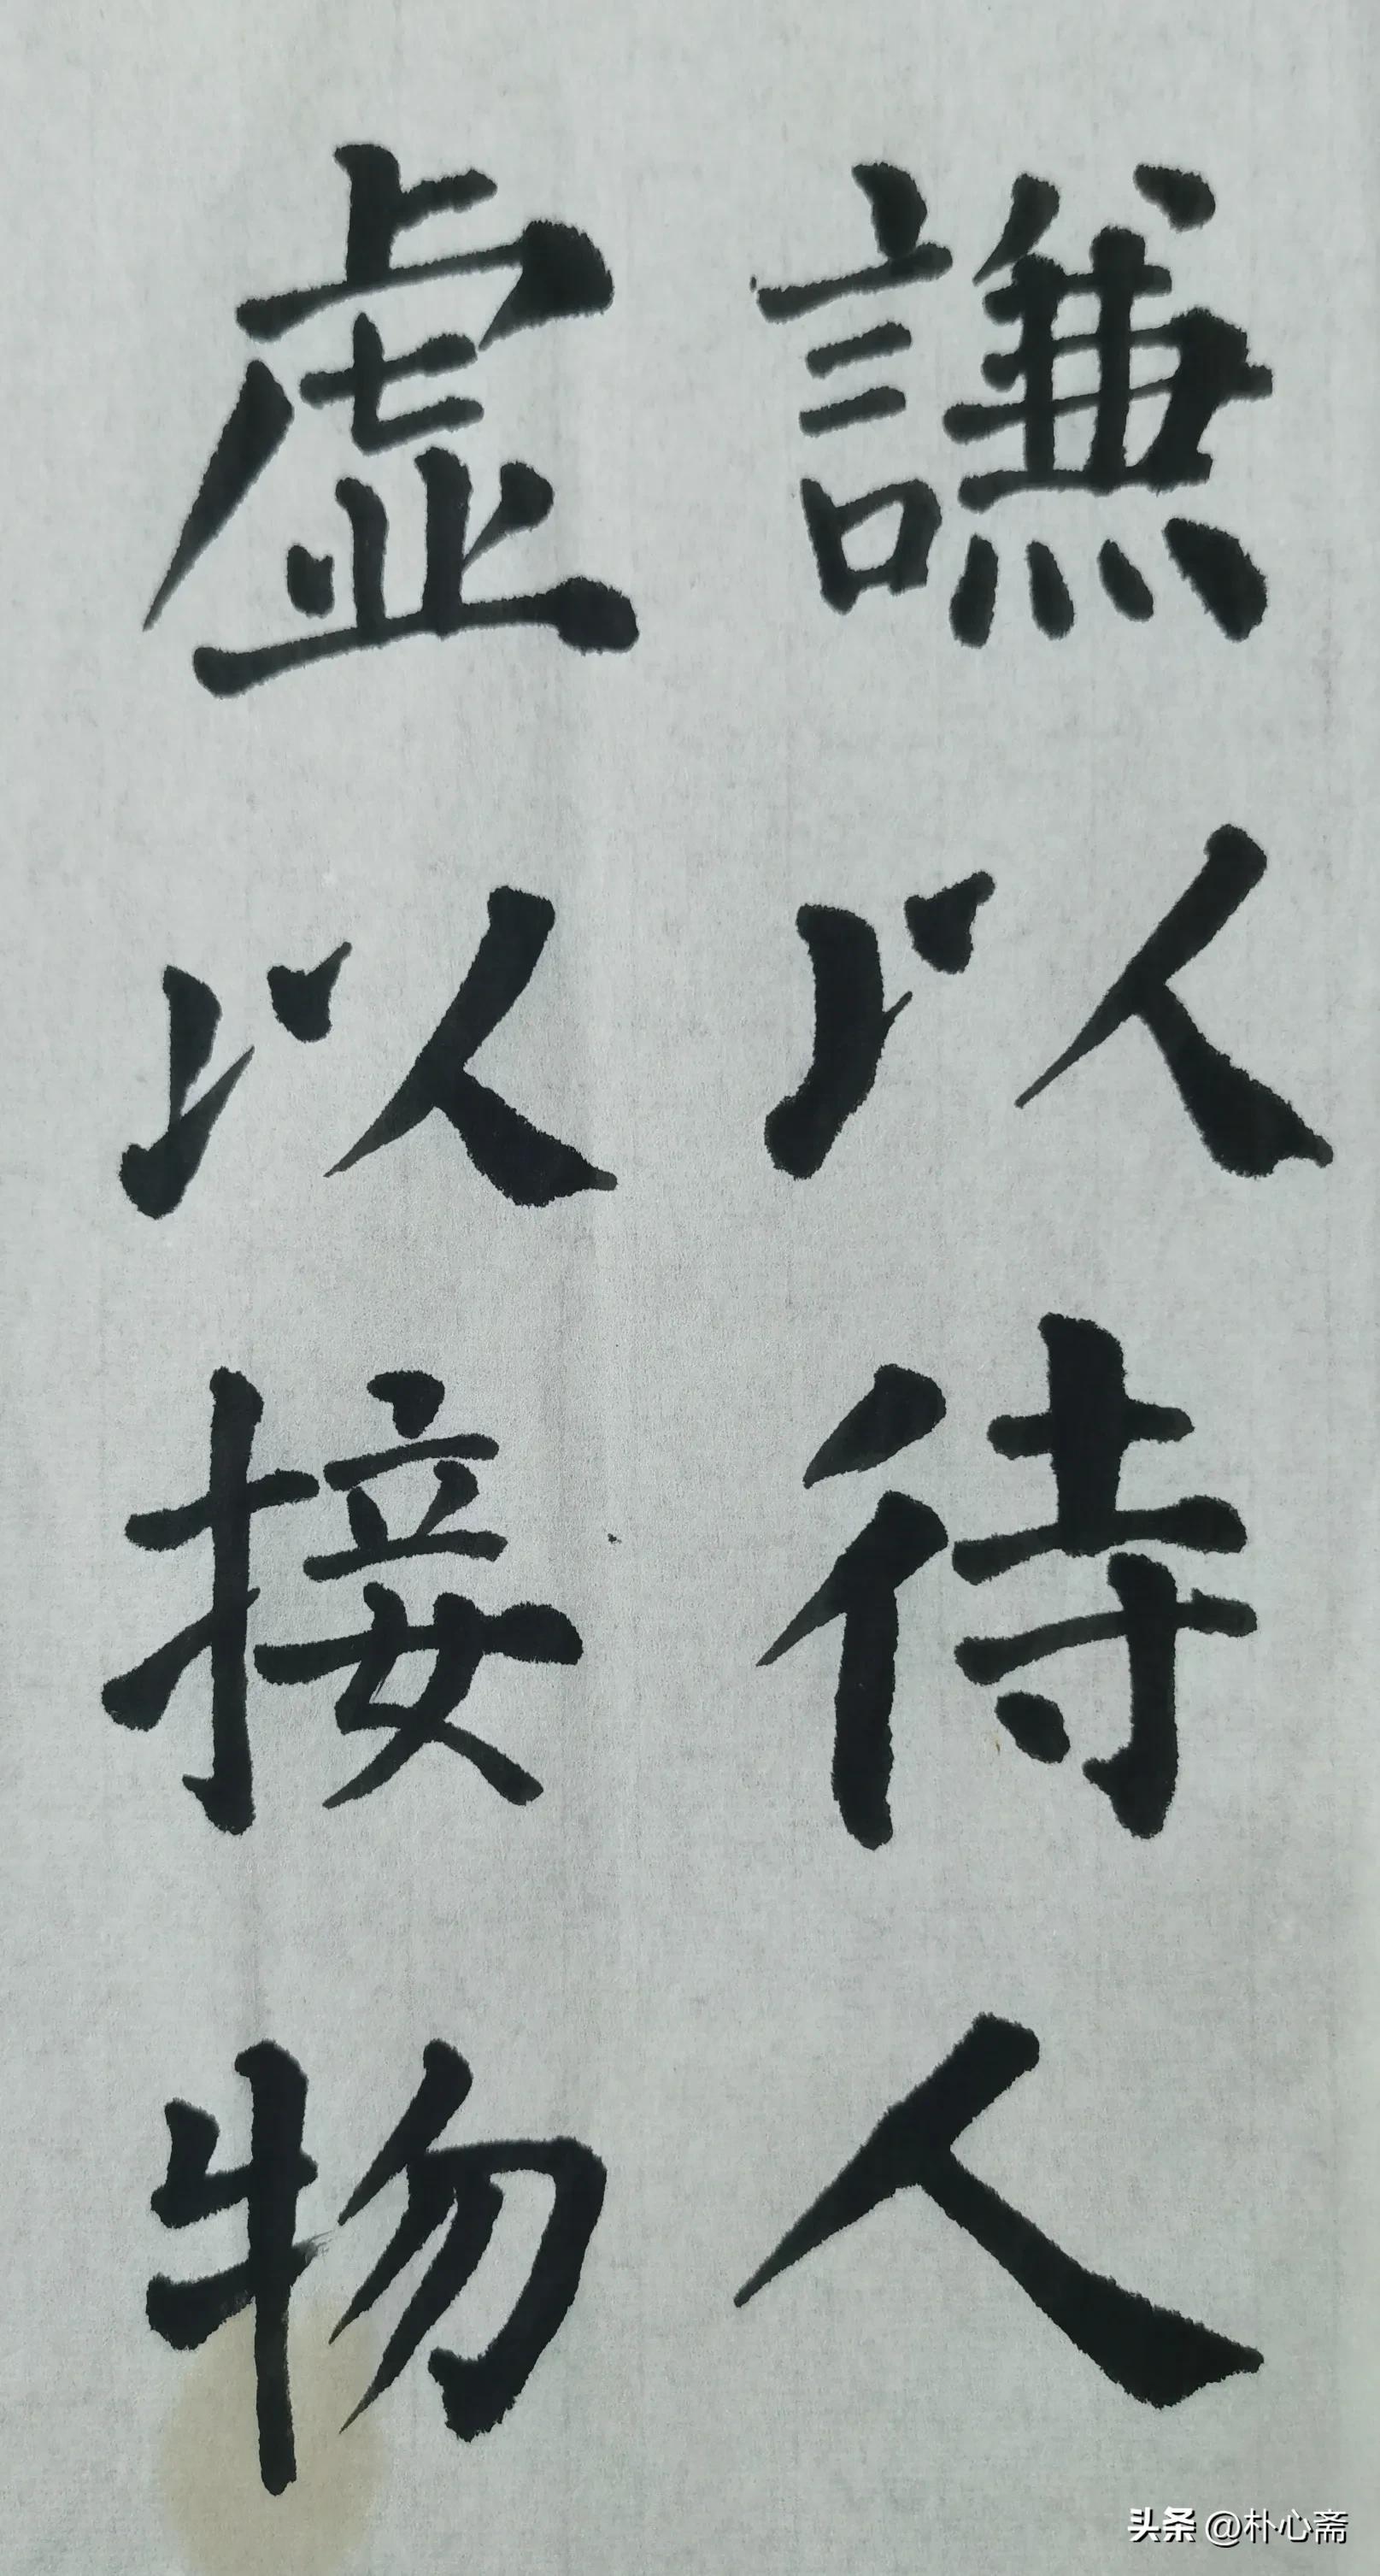 謙以待人
虚以接物
头条 @朴心斋